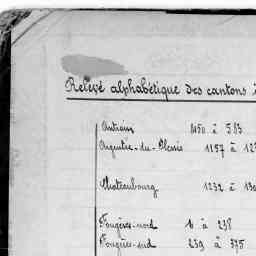 Relevé alphabétique des cantons
Antrain 1150 à 583
Argentré-du-Plessis 1157 à
Chateaubourg 1232 à
Fougères-nord 1 à 238
Fougères-sud 239 à 375